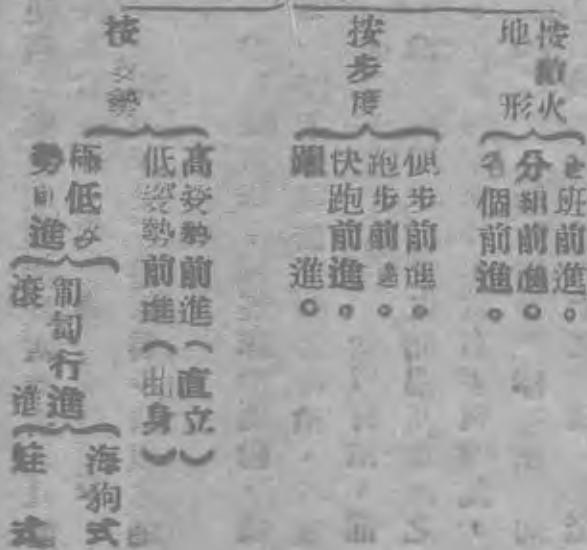 按敵火
地形
班前進。
分組前進。
各個前進。
按步度
便步前進。
跑步前進。
快跑前進。
躍進。
按姿勢
高姿勢前進(直立)
低姿勢前進(身)
極低姿
勢前進
匍匐行進
海狗式
蛙式
滾進